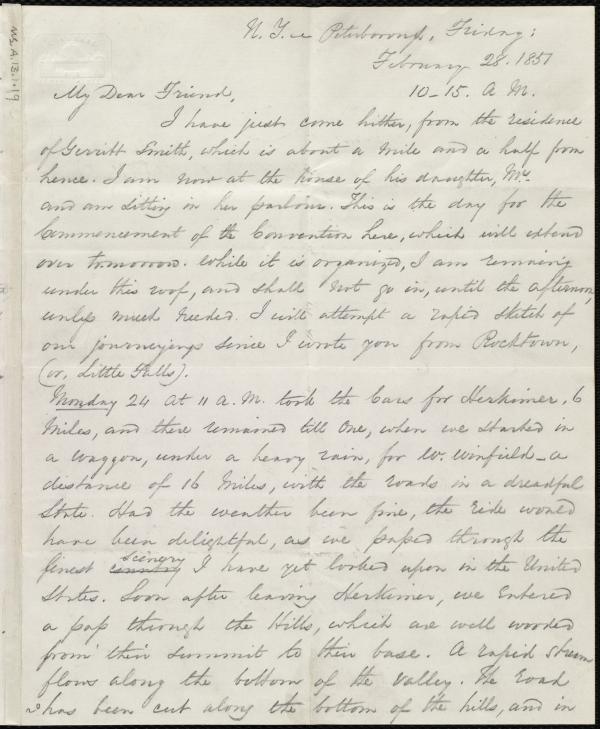 Ms.A.1.2.1.19
N. Y. Peterborough, Friday:
February 28. 1851
My Dear Friend, 10-15. A M.
I have just come hither, from the residence
of Gerritt Smith, which is about a mile and a half from
hence. I am now at the house of his daughter, Mrs
and am sitting in her parlour. This is the day for the
Commencement of the Convention here, which will extend
over tomorrow. While it is organized, I am remaining
under this roof, and shall not go in, until the afternoon,
unless much needed. I will attempt a rapid sketch of
our journeyings since I wrote you from Rocktown,
(or, Little Falls).
Monday 24 at 11 a.m. took the Cars for Herkimer, 6
Miles, and there remained till One, when we started in
a waggon, under a heavy rain, for W. Winfield - a
distance of 16 Miles, with the roads in a dreadful
State. Had the weather been fine, the ride would
have been delightful, as we passed through the
finest country scenery I have yet looked upon in the United
States. Soon after leaving Herkimer, we Entered
a pass through the Hills, which are well wooded
from their summit to their base. A rapid stream
flows along the bottom of the valley. The Road
has been cut along the bottom of the hills, and in